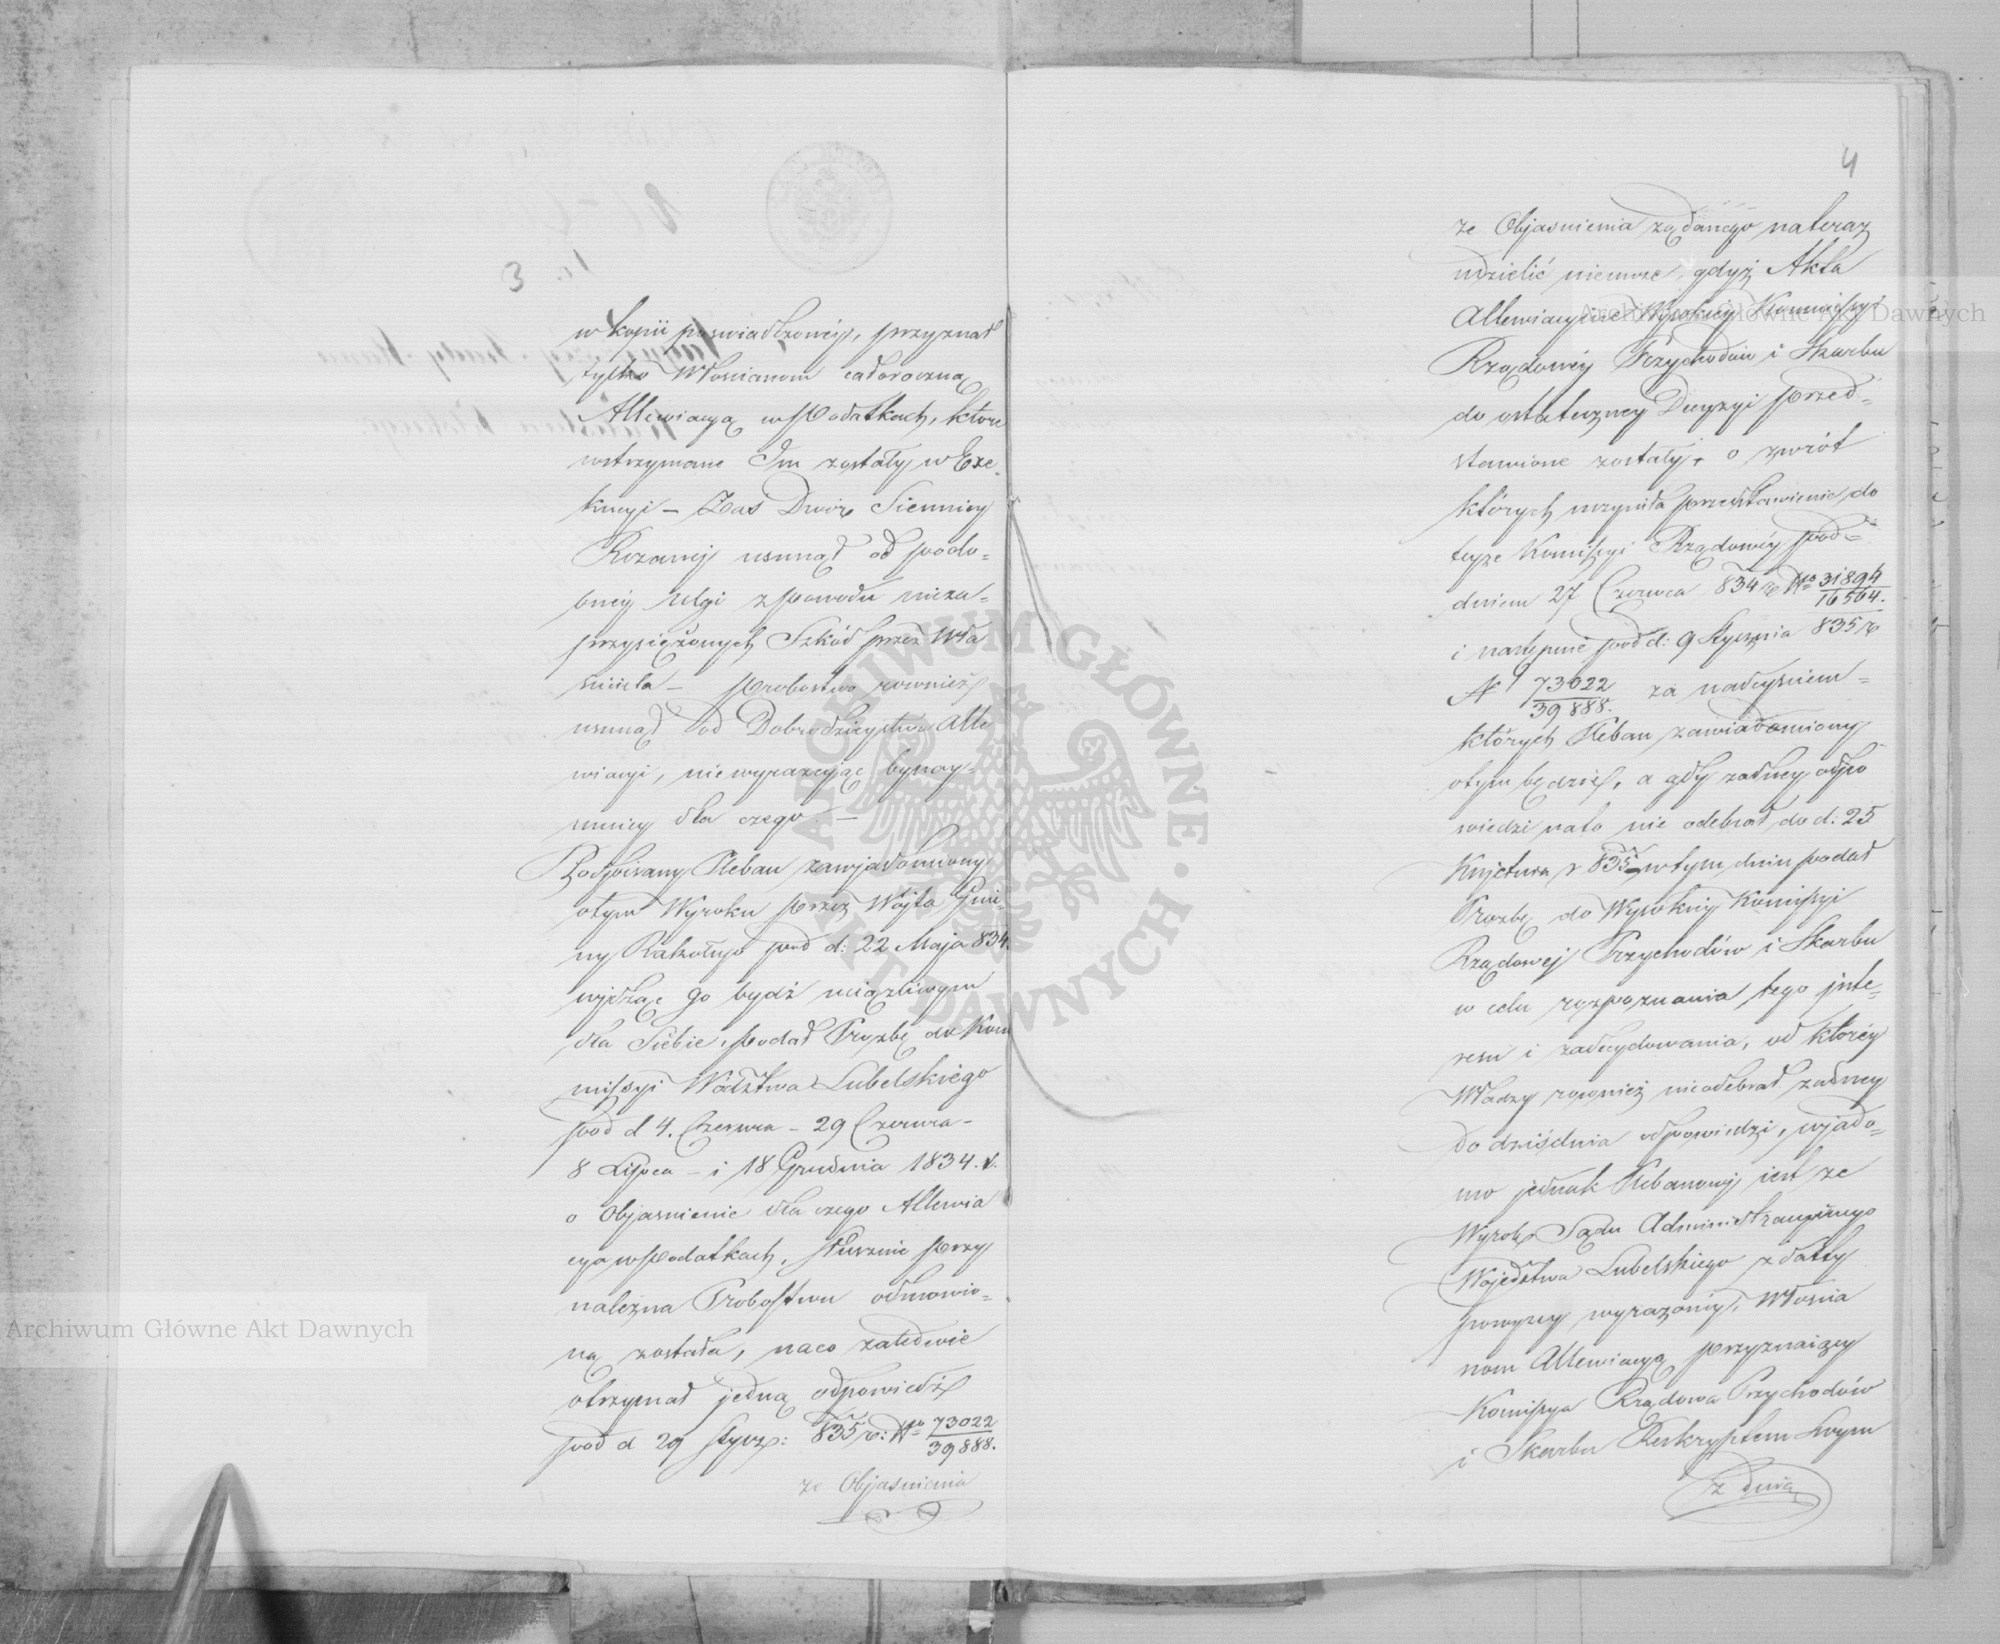 3
w kopii poswiadczonéj, przyznał
tylko Włoscianom całoroczną
Allewiacyą w Podatkach, które
wstrzymane Im zostały w Exe-
kucyi – Zas Dwór Siennicy
Rozanéj usunął od podo-
bnéj ulgi z powodu nieza-
przysiężonych Szkód przez Wła
sciciela – Probostwo rownież
usunął od Dobrodzieystwa Alle
wiacyi, nie wyrażając bynay-
mniey dla czego. –
Podpisany Pleban zawiadomiony
otym Wyroku przez Wójta Gmi-
ny Rakołupy pod d: 22 Maja 834.
widząc go bydź uciążliwym
dla Siebie, podał Prozbę do Kom
missyi Wództwa Lubelskiego
pod d 4. Czerwca – 29 Czerwca –
8 Lipca – i 18 Grudnia 1834. r.
o Objasnienie dla czego Allewia
cya w Podatkach, słusznie przy
należna Probostwu odmowio-
ną została, naco zaledwie
otrzymał jedną odpowiedź
pod d 29 Stycz: 835 r: No 73022/39888.
ze Objasnienia
4
ze Objasnienia żądanego nateraz
udzielić niemoże, gdyż Akta
Allewiacyine Wysokiéj Kommissyi
Rządowéj Przychodów i Skarbu
do ostateczney Decyzyi przed-
stawione zostały, o zwrót
których uczyniła przedstawienie do
teyże Komissyi Rządowéj pod
dniem 27 Czerwca 834 r No 31894/16564.
i następnie pod d: 9 Stycznia 835 r
N 73022/39888. za nadeysciem
których Pleban zawiadomiony
otym będzie, a gdy zadney odpo
wiedzi nato nie odebrał do d: 25
Kwietnia r 835 w tym dniu podał
Prozbę do Wysokiéj Komissyi
Rządowej Przychodów i Skarbu
w celu rozpoznania tego inte-
resu i zadecydowania, od któréy
Władzy rownież nieodebrał zadney
do dziśdnia odpowiedzi, wjado-
mo jednak Plebanowi iest że
Wyrok Sądu Administracyinego
Wojedztwa Lubelskiego z daty
powyzey wyrażonéj, Włoscia
nom Allewiacyą przyznaiący
Komissya Rządowa Przychodów
i Skarbu Reskryptem Swym
z dnia
Archiwum Główne Akt Dawnych
Archiwum Główne Akt Dawnych
ARCHIWUM GŁÓWNE AKT DAWNYCH